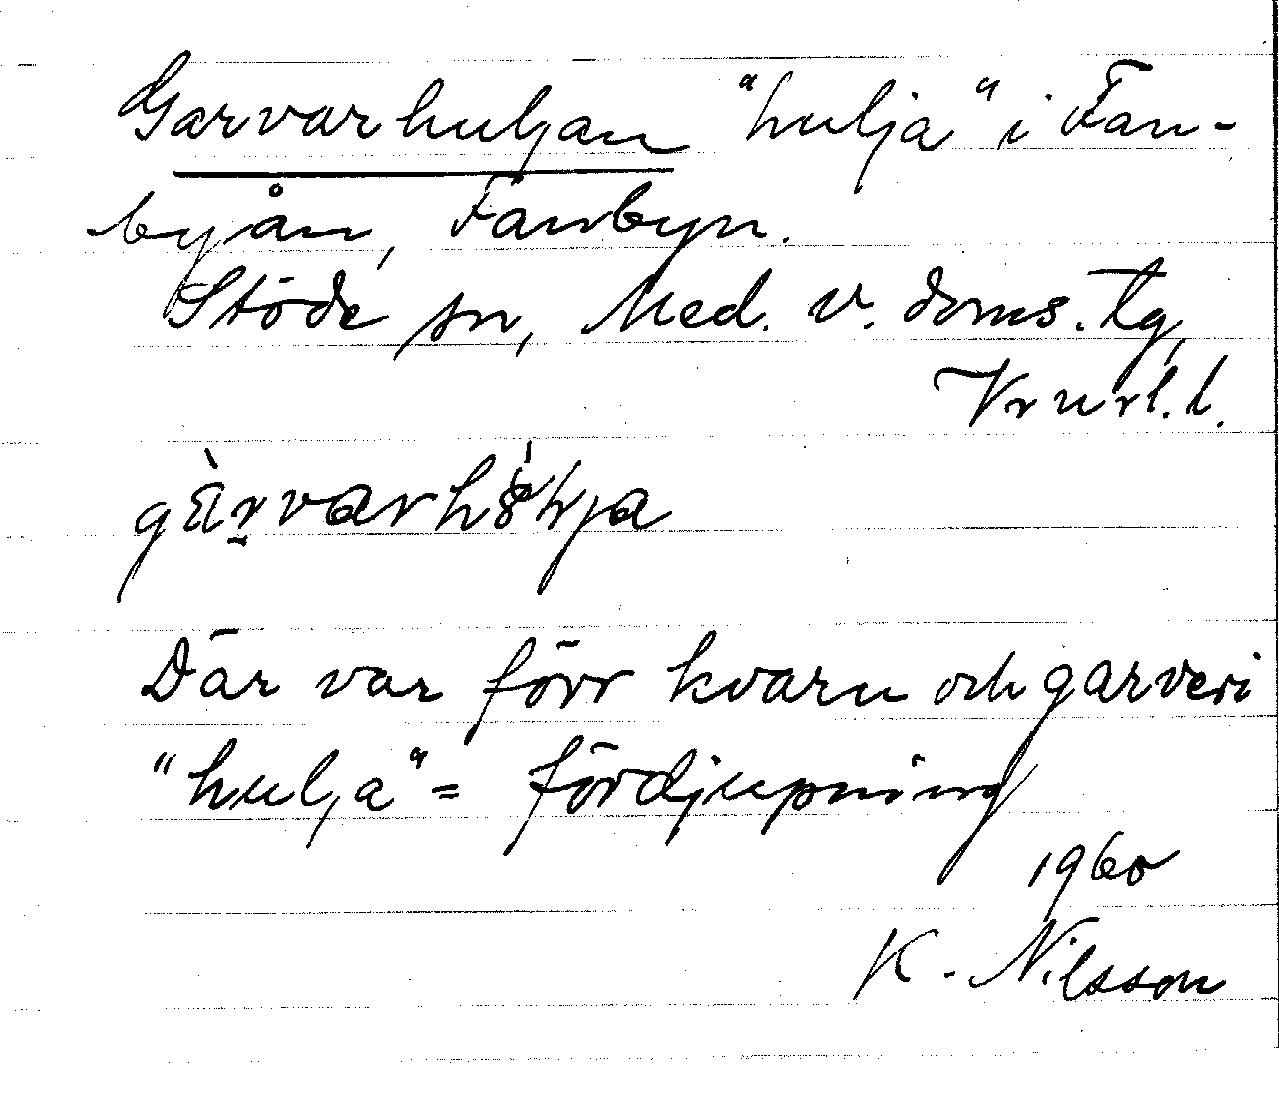 Garvarhuljan "hulja" i Fan-
byån, Fanbyn.
Stöde sn, Med. v. doms. tg,
Vrnrl. l.
Där var förr kvarn och garveri
"hulja" = fördjupning
1960
K. Nilsson